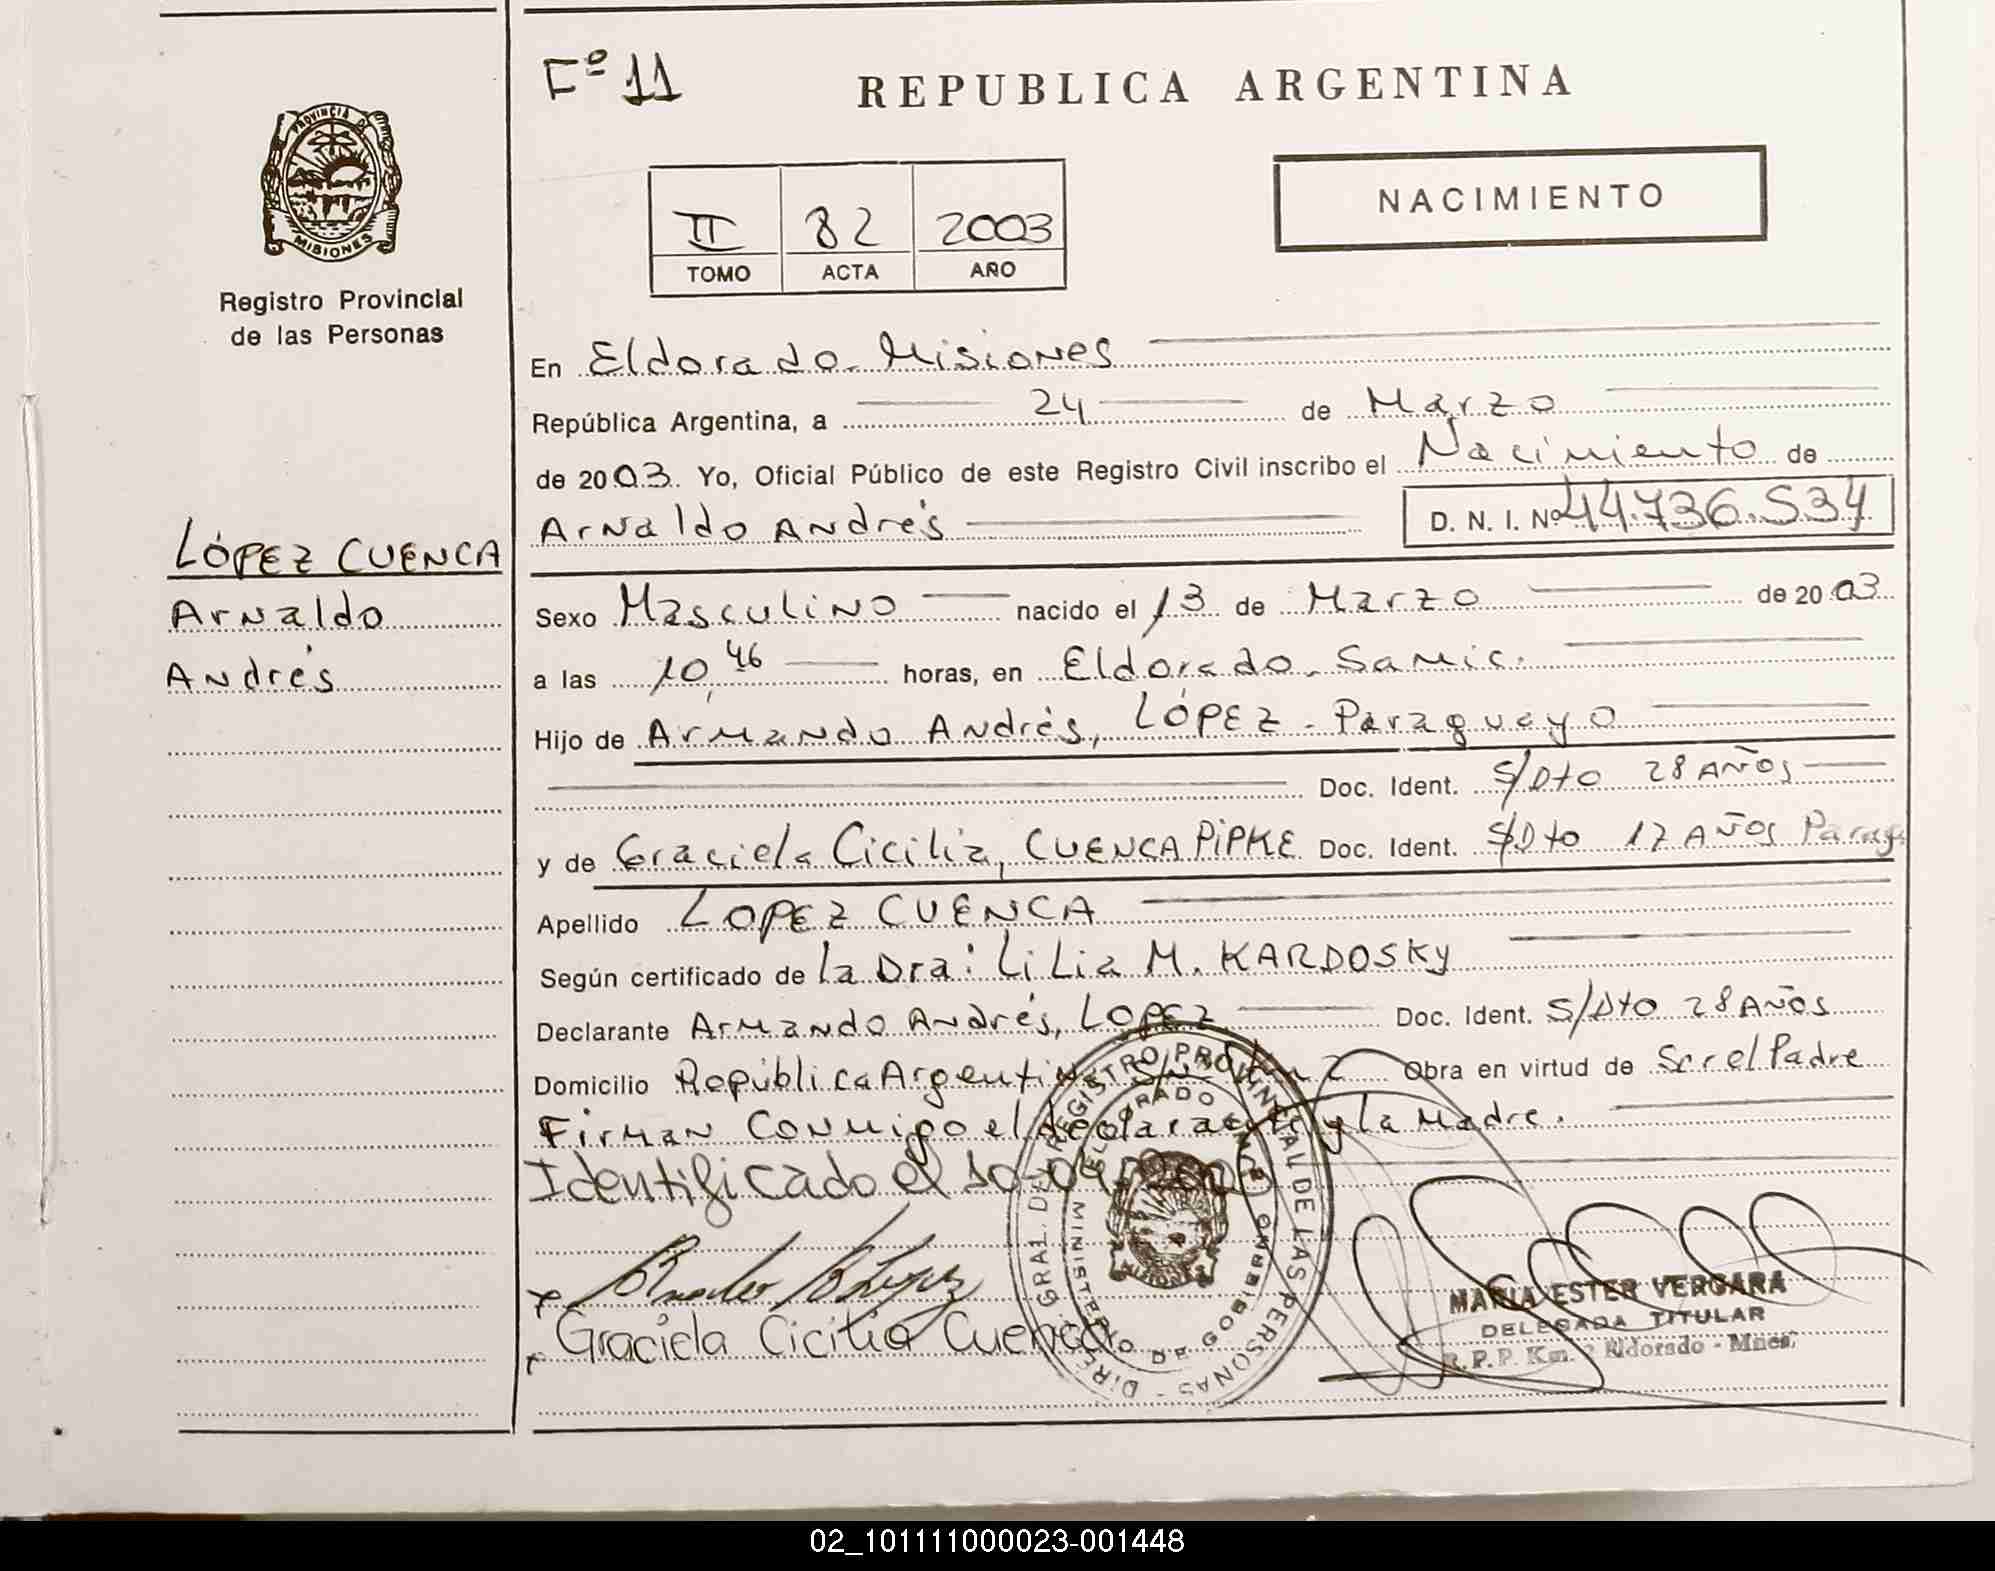 Fº 11
REPUBLICA ARGENTINA
PROVINCIA DE
MISIONES
Registro Provincial
de las Personas
II 82 2003
TOMO ACTA AÑO
NACIMIENTO
En Eldorado. Misiones
República Argentina, a 24 de Marzo
de 2003. Yo, Oficial Público de este Registro Civil inscribo el Nacimiento de
Arnaldo Andrés D. N. I. Nº 44.736.534
LÓPEZ CUENCA
Arnaldo
Andrés
Sexo Masculino nacido el 13 de Marzo de 2003
a las 10,46 horas, en Eldorado. Samic.
Hijo de Armando Andrés, LÓPEZ - Paraguayo
Doc. Ident. S/Dto 28 AÑOS
y de Graciela Cicilia, CUENCA PIPKE Doc. Ident. S/Dto 17 AÑOS Parag.
Apellido LOPEZ CUENCA
Según certificado de la Dra: Lilia M. KARDOSKY
Declarante Armando Andrés, LOPEZ Doc. Ident. S/Dto 28 AÑOS
Domicilio República Argentina S/Nº Km 2 Obra en virtud de Ser el Padre
Firman Conmigo el declarante y la Madre.
Identificado el 10-04-
Graciela Cicilia Cuenca
DIREC. GRAL. DEL REGISTRO PROVINCIAL DE LAS PERSONAS
MINISTERIO DE GOBIERNO
ELDORADO KM.
MISIONES
MARIA ESTER VERGARA
DELEGADA TITULAR
R.P.P. Km. 2 Eldorado - Mnes.
02_101111000023-001448